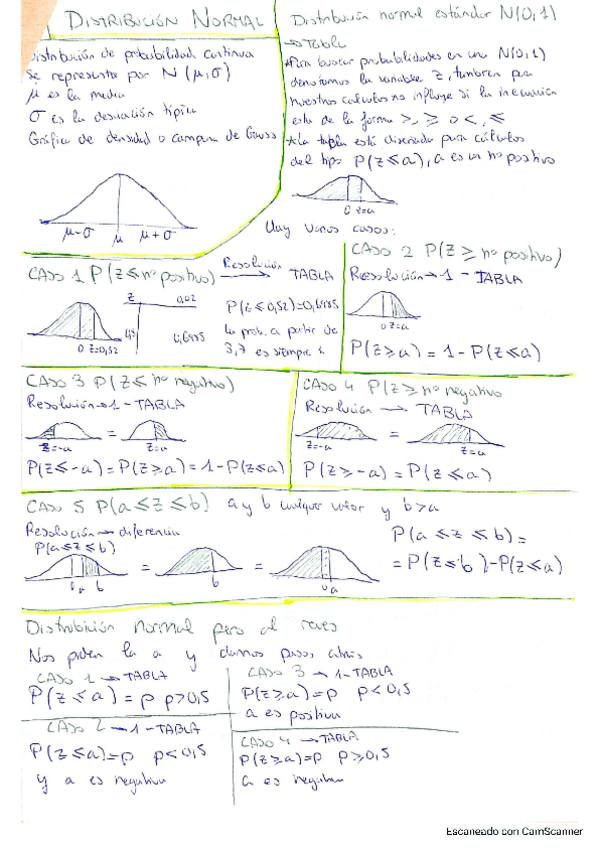 DISTRIBUCIÓN NORMAL
Distribución de probabilidad continua
se representa por N (μ,σ)
μ es la media
σ es la desviación típica
Gráfica de densidad o campana de Gauss
μ-σ μ μ+σ
Distribución normal estándar N(0,1)
→ Tabla
*Para buscar probabilidades en una N(0,1)
denotamos la variable Z, también para
nuestros cálculos no influye si la inecuación
esta de la forma >, ≥ o <, ≤
*La tabla está diseñada para cálculos
del tipo P(Z≤a), a es un nº positivo
0 Z=a
Hay varios casos:
CASO 1 P(Z≤nº positivo) Resolución → TABLA
Z 0,02
0,5 0,6985
0 Z=0,52
P(Z≤0,52)=0,6985
la prob. a partir de
3,7 es siempre 1
CASO 2 P(Z≥ nº positivo)
Resolución → 1 - TABLA
0 Z=a
P(Z≥a) = 1-P(Z≤a)
CASO 3 P(Z≤ nº negativo)
Resolución → 1-TABLA
Z=-a = Z=a
P(Z≤-a)=P(Z≥a)=1-P(Z≤a)
CASO 4 P(Z≥ nº negativo
Resolución → TABLA
Z=-a = Z=a
P(Z≥-a)=P(Z≤a)
CASO 5 P(a≤Z≤b) a y b cualquier valor y b>a
Resolución → diferencia
P(a≤Z≤b)
a b = b = 0 a
P(a≤Z≤b)=
=P(Z≤b)-P(Z≤a)
Distribución normal pero al revés
Nos piden la a y damos pasos atrás
CASO 1 → TABLA
P(Z≤a)=p p>0,5
CASO 3 → 1-TABLA
P(Z≥a)=p p<0,5
a es positiva
CASO 2 → 1-TABLA
P(Z≤a)=p p<0,5
y a es negativa
CASO 4 → TABLA
P(Z≥a)=p p≥0,5
a es negativa
Escaneado con CamScanner